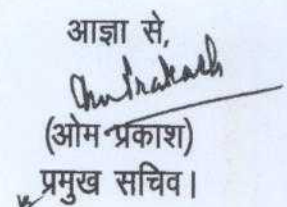 आज्ञा से,
Om Prakash
(ओम प्रकाश)
प्रमुख सचिव।